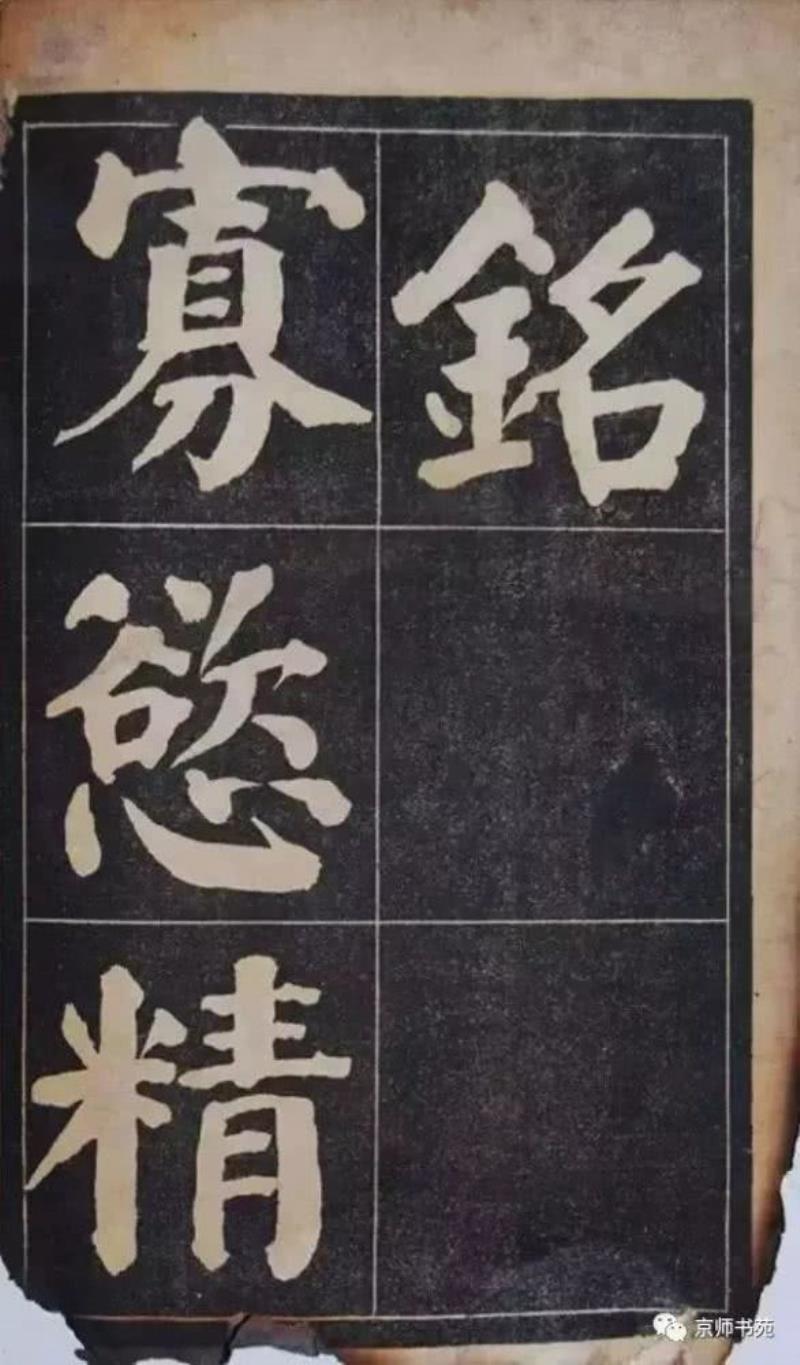 銘
寡慾精
京师书苑